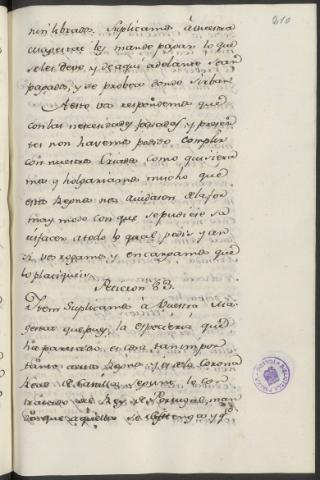 210
nin librados. Suplicamos à vuestra
magestad les mande pagar lo que
se les deve, y de aqui adelante sean
pagados, y se provea donde sirban.
A esto vos respondemos que
con las necesidades pasadas, y presen
tes non havemos podido cumplir
con nuestros Criados como quisiera
mos y holgariamos mucho que
estos Reynos nos ayudasen de la for
ma y modo con que se pudiese sa
tisfacer a todo lo qual pedis y an
si vos rogamos y encargamos que
lo platiqueis.
Peticion 63.
Item Suplicamos à Vuestra Ma
gestad que pues la especeria que
ha parescido es cosa tan impor
tante a estos Reynos y es de la Corona
Real de Castilla segun lo con
tratado del Rey de Portugal, man
de que aquello se sostenga y